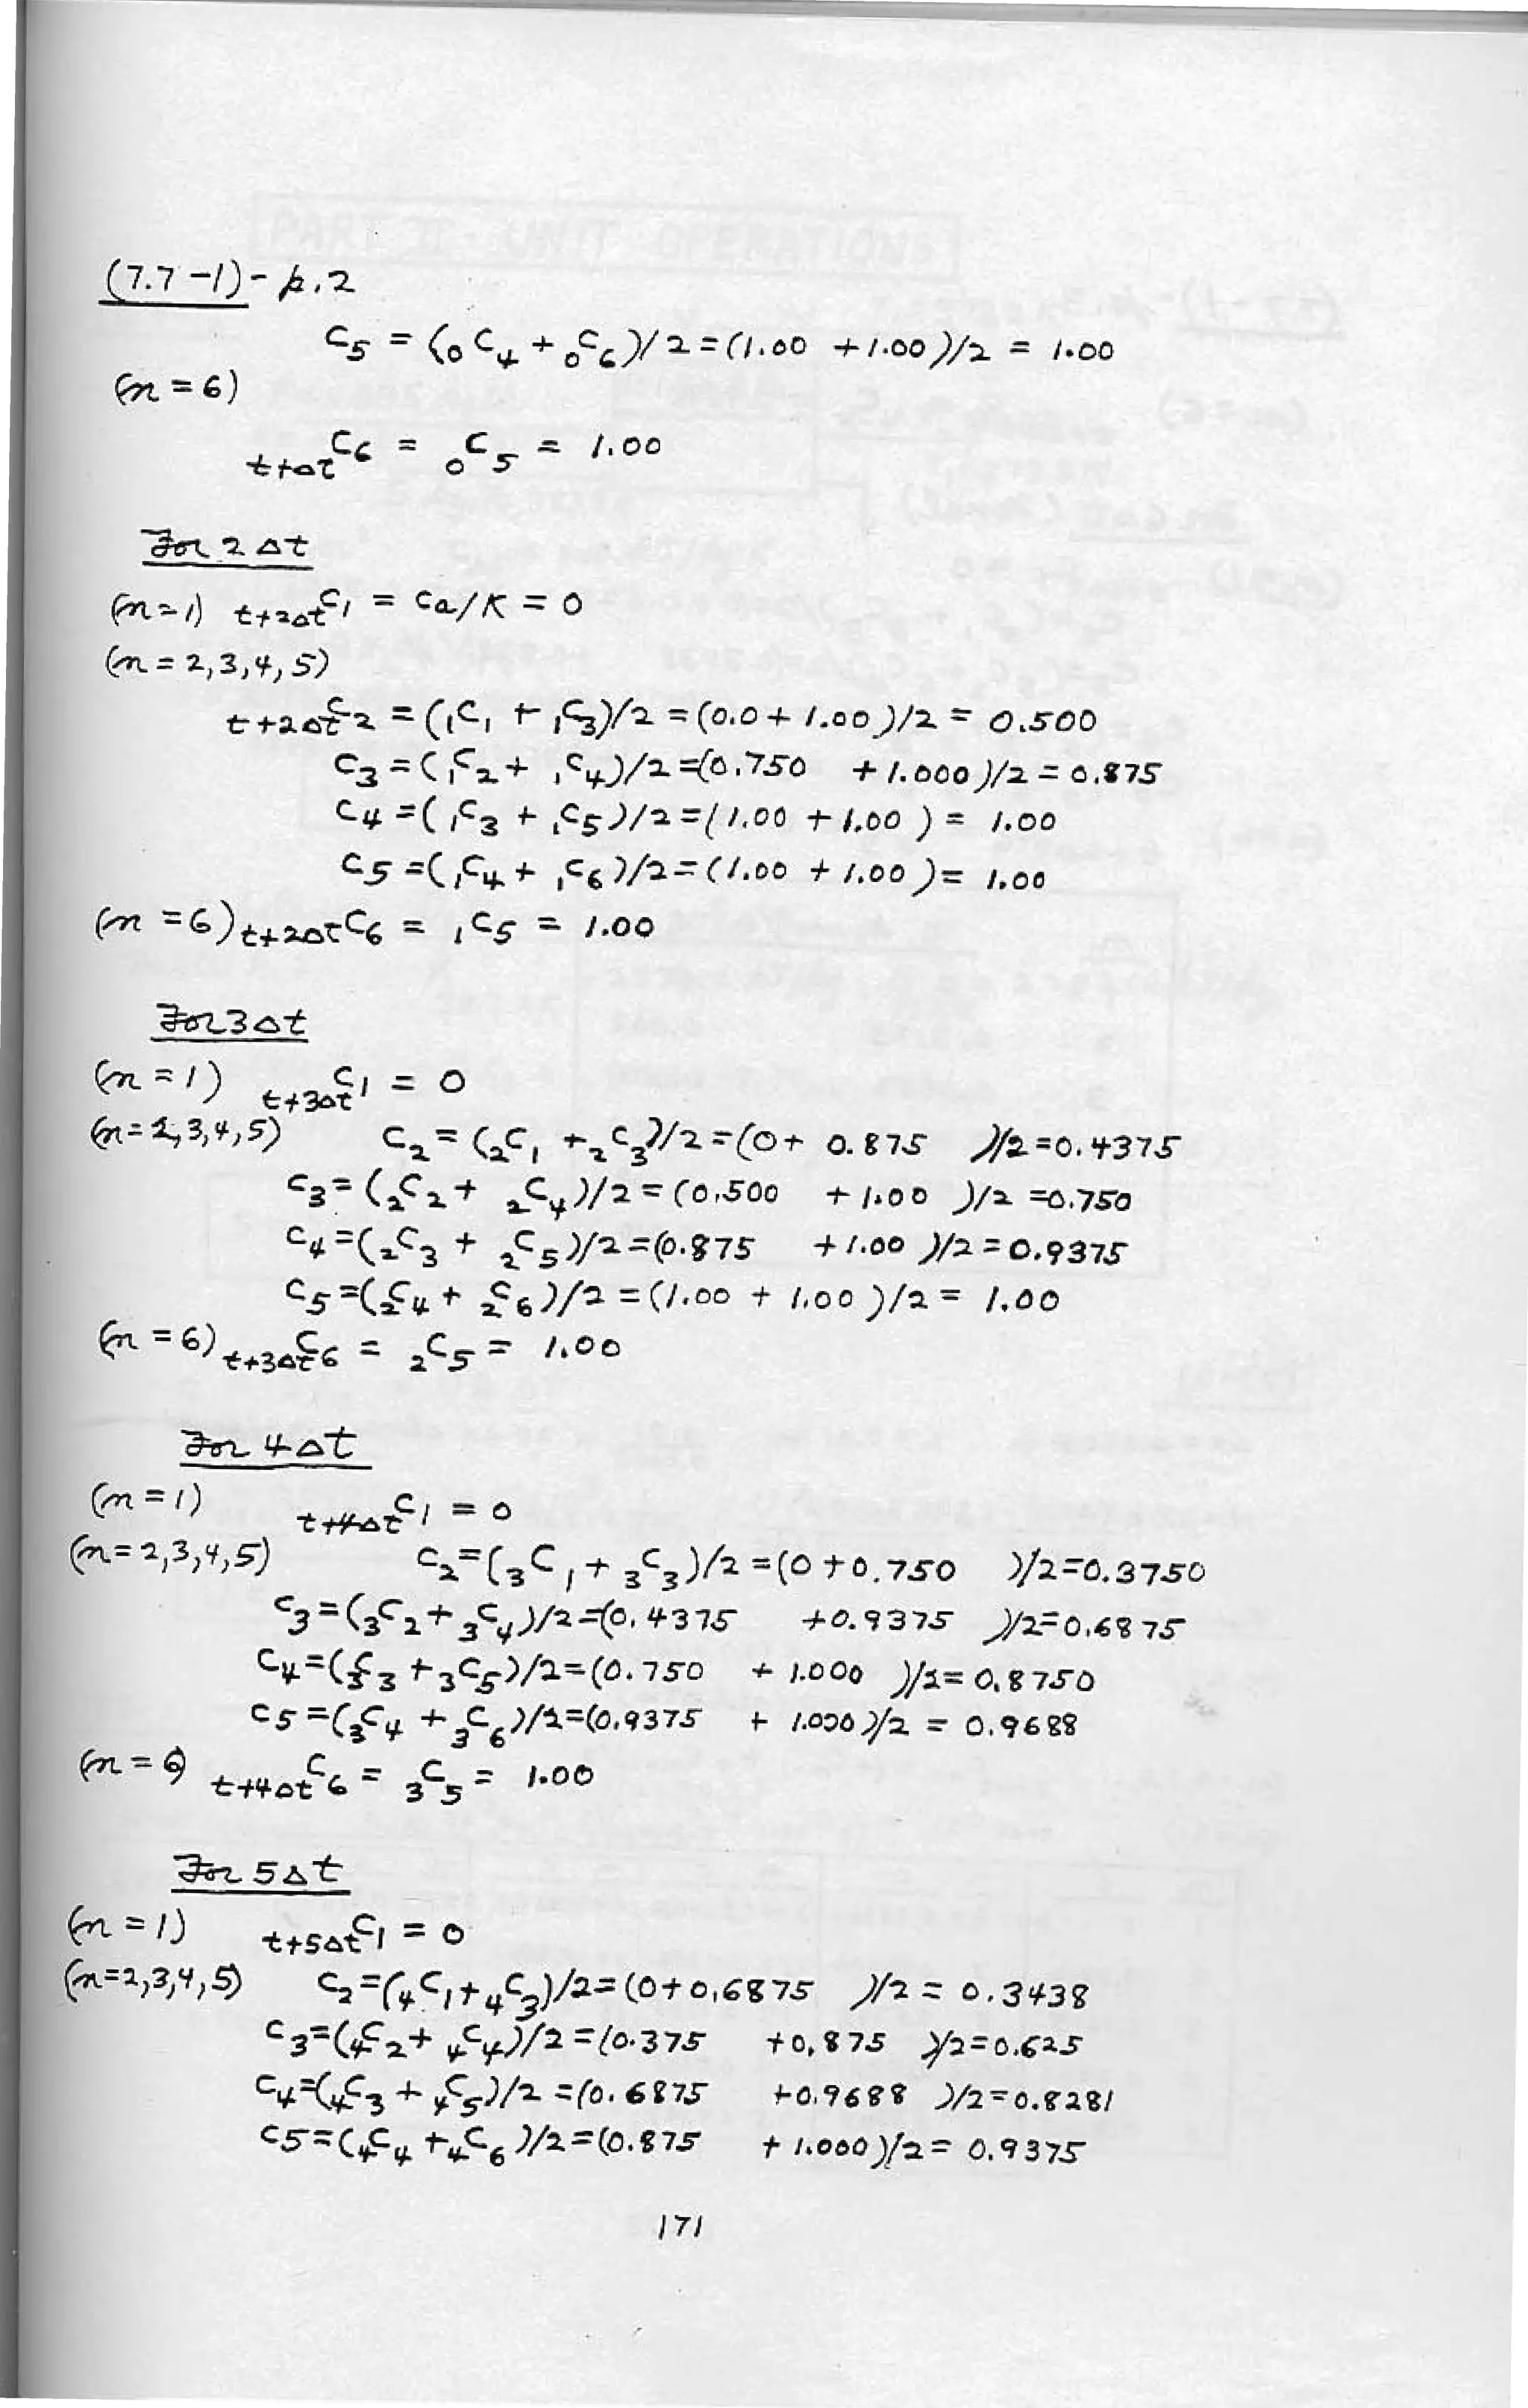 (7.7-1)-p.2
C5 = (0C4 + 0C6)/2 = (1.00 + 1.00)/2 = 1.00
(n = 6)
t+ΔtC6 = 0C5 = 1.00
For 2 Δt
(n=1) t+2ΔtC1 = Ca/K = 0
(n = 2,3,4,5)
t+2ΔtC2 = (1C1 + 1C3)/2 = (0.0 + 1.00)/2 = 0.500
C3 = (1C2 + 1C4)/2 = (0.750 + 1.000)/2 = 0.875
C4 = (1C3 + 1C5)/2 = (1.00 + 1.00) = 1.00
C5 = (1C4 + 1C6)/2 = (1.00 + 1.00) = 1.00
(n = 6) t+2ΔtC6 = 1C5 = 1.00
For 3Δt
(n = 1) t+3ΔtC1 = 0
(n = 2,3,4,5) C2 = (2C1 + 2C3)/2 = (0 + 0.875)/2 = 0.4375
C3 = (2C2 + 2C4)/2 = (0.500 + 1.00)/2 = 0.750
C4 = (2C3 + 2C5)/2 = (0.875 + 1.00)/2 = 0.9375
C5 = (2C4 + 2C6)/2 = (1.00 + 1.00)/2 = 1.00
(n = 6) t+3ΔtC6 = 2C5 = 1.00
For 4Δt
(n = 1) t+4ΔtC1 = 0
(n = 2,3,4,5) C2 = (3C1 + 3C3)/2 = (0 + 0.750)/2 = 0.3750
C3 = (3C2 + 3C4)/2 = (0.4375 + 0.9375)/2 = 0.6875
C4 = (3C3 + 3C5)/2 = (0.750 + 1.000)/2 = 0.8750
C5 = (3C4 + 3C6)/2 = (0.9375 + 1.000)/2 = 0.9688
(n = 6) t+4ΔtC6 = 3C5 = 1.00
For 5Δt
(n = 1) t+5ΔtC1 = 0
(n=2,3,4,5) C2 = (4C1 + 4C3)/2 = (0 + 0.6875)/2 = 0.3438
C3 = (4C2 + 4C4)/2 = (0.375 + 0.875)/2 = 0.625
C4 = (4C3 + 4C5)/2 = (0.6875 + 0.9688)/2 = 0.8281
C5 = (4C4 + 4C6)/2 = (0.875 + 1.000)/2 = 0.9375
171